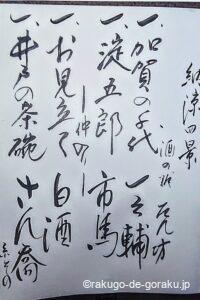 納涼四景
酒の
一、加賀の千代 一之輔
一、淀五郎 市馬
―仲入―
一、お見立て 白酒
一、井戸の茶碗 さん喬
©rakugo-de-goraku.jp